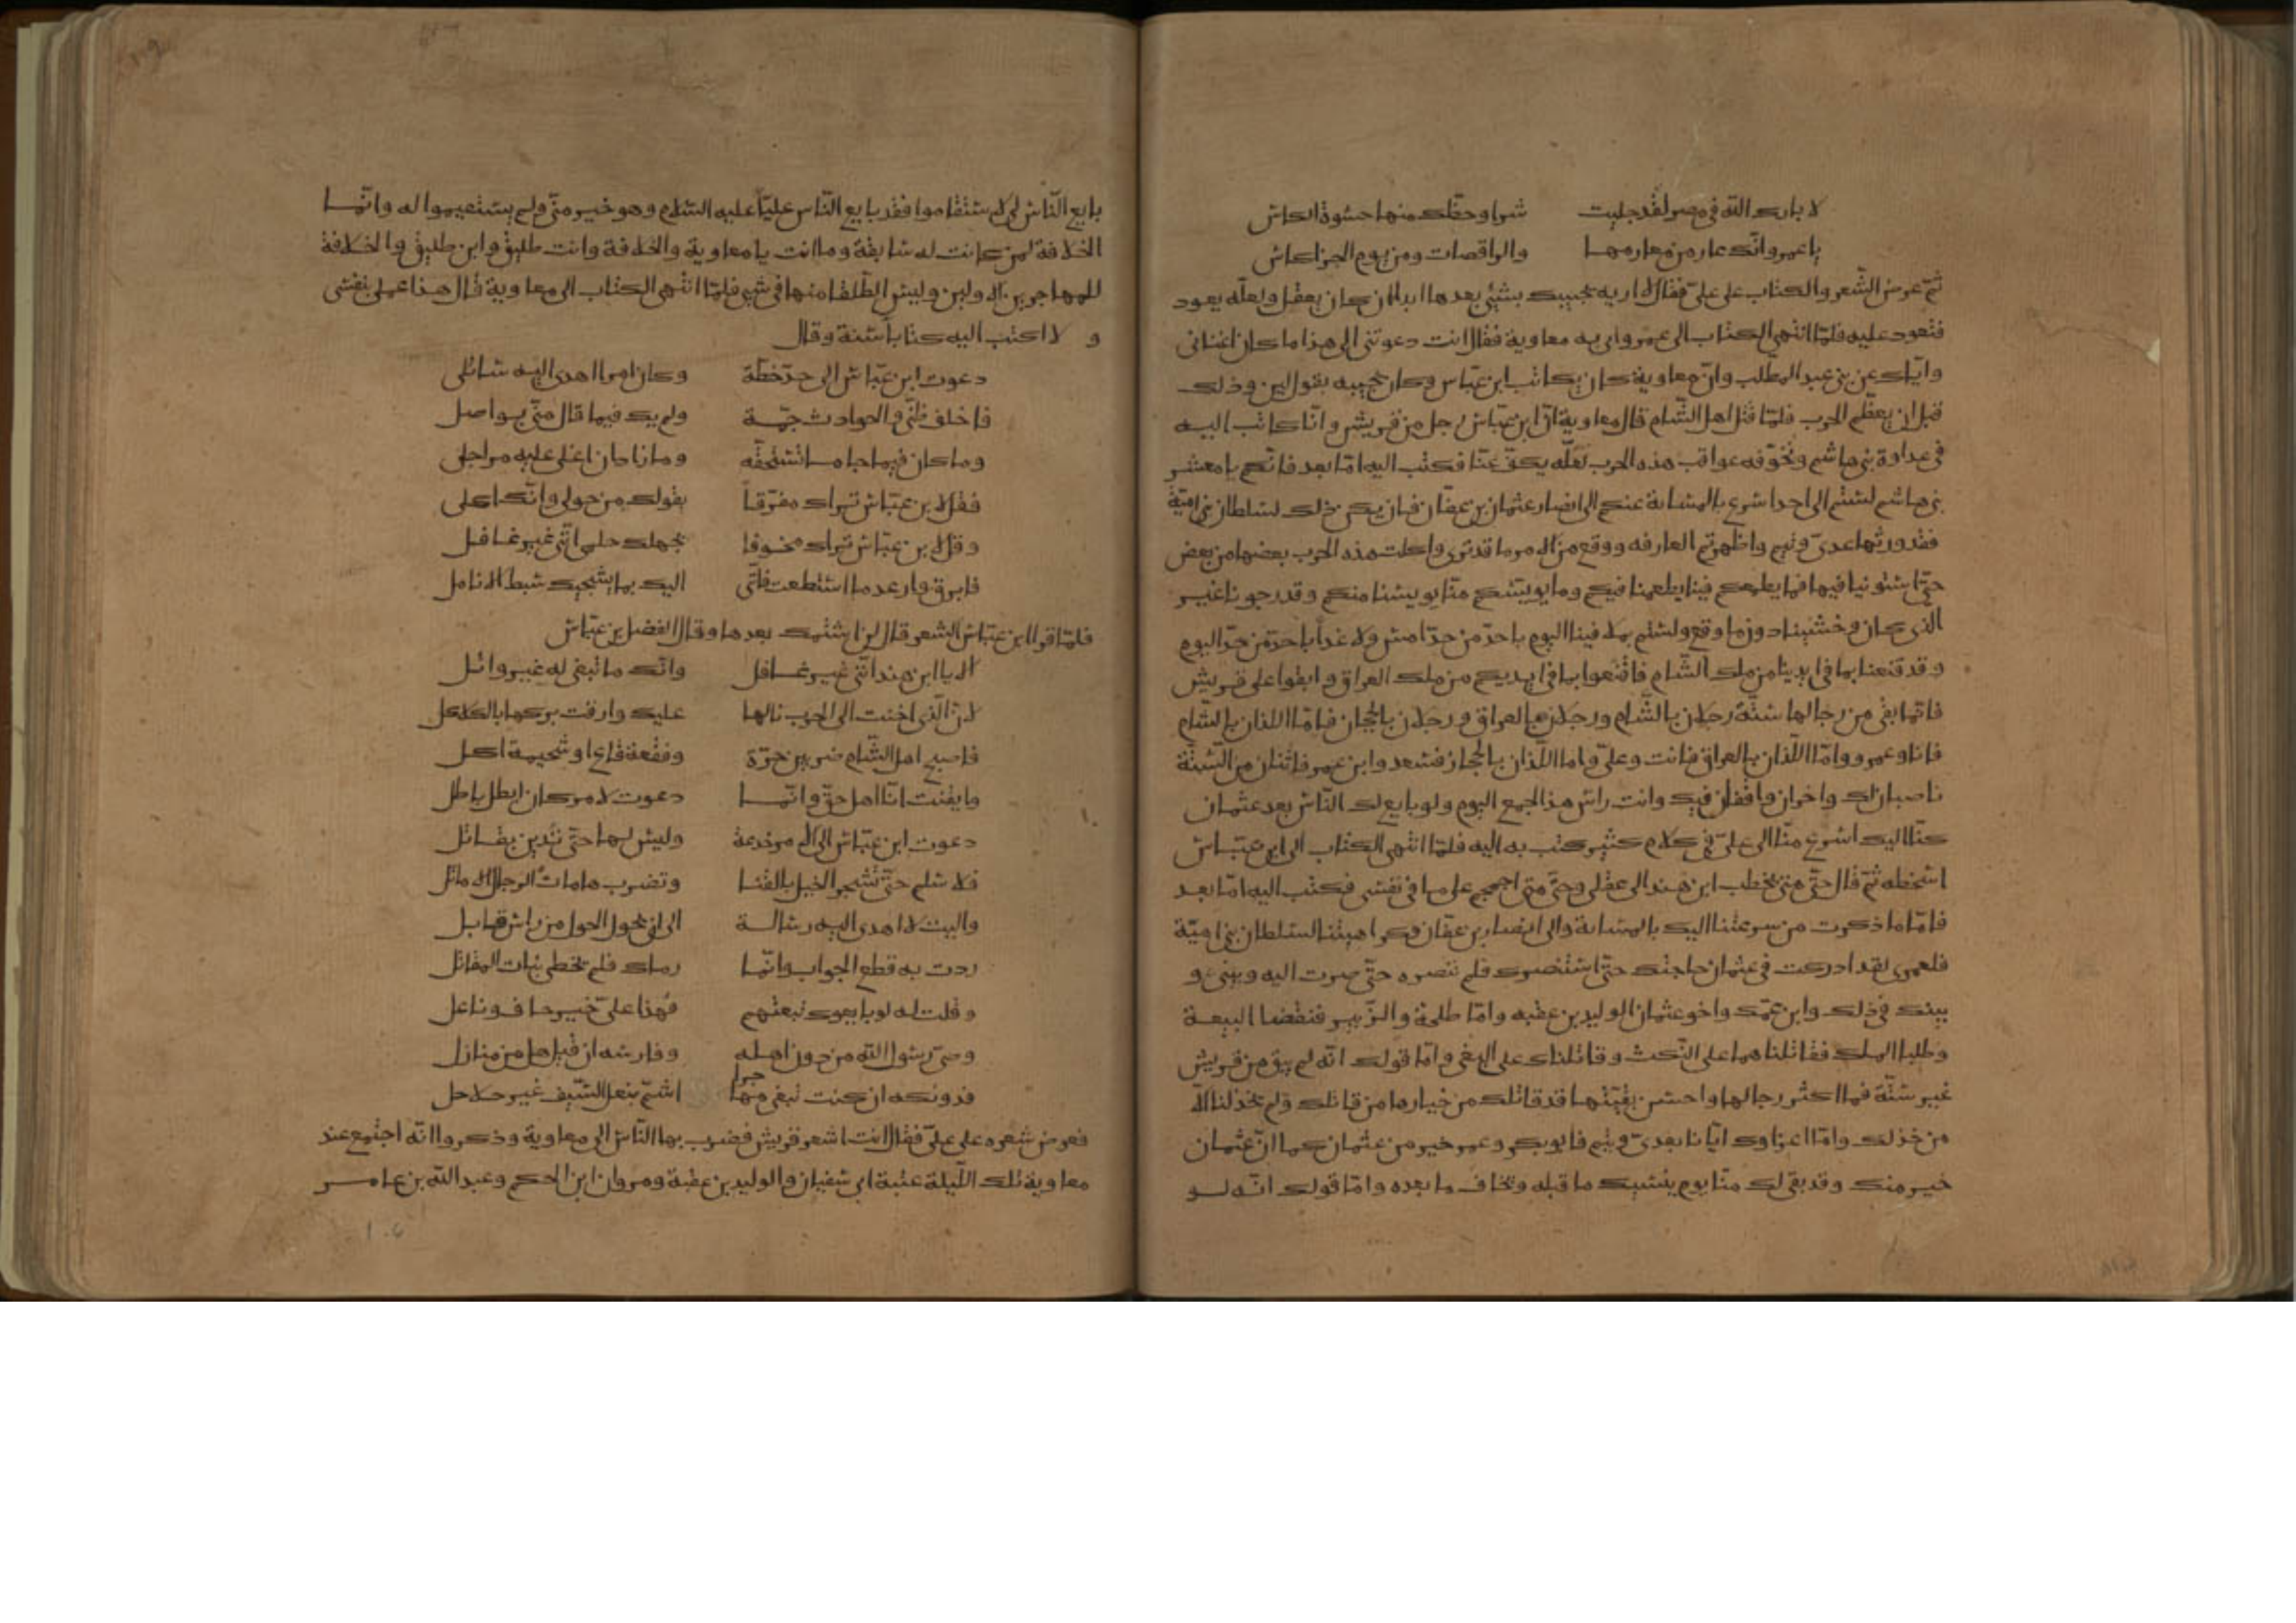 لا بارك الله في مصر لقد جلبت شرا وحظك منها حسوة الكاس
يا عمرو انك عار من معارمها والراقصات ومن يوم الجزا كاس
ثم عرض الشعر والكتاب على علي فقال لا اريه يجيبك بشئ بعدها ابدا ان كان يعقل ولعله يعود
فتعود عليه فلما انتهى الكتاب الى عمرو اتى به معاوية فقال انت دعوتني الى هذا ما كان اغناني
واياك عن بني عبد المطلب وان معاوية كان يكاتب ابن عباس وكان يجيبه بقول لين وذلك
قبل ان يعظم الحرب فلما قتل اهل الشام قال معاوية ان ابن عباس رجل من قريش وانا كاتب اليه
في عداوة بني هاشم ونخوفه عواقب هذه الحرب لعله يكف عنا فكتب اليه اما بعد فانكم يا معشر
بني هاشم لستم الى احد اسرع بالمساة عنكم الى انصار عثمان بن عفان فان يكن ذلك لسلطان بني امية
فقد ورثها عدي وتيم واظهرتم العارفه ووقع من الامر ما قد ترى واكلت هذه الحرب بعضها من بعض
حتى استوينا فيها فما يطمعكم فينا يطمعنا فيكم وما يويسكم منا يويسنا منكم وقد رجونا غير
الذي كان وخشينا دون ما وقع ولستم بملاقينا اليوم باحد من حد امس ولا غدا باحد من حد اليوم
وقد قنعنا بما في ايدينا من ملك الشام فاقنعوا بما في ايديكم من ملك العراق وابقوا على قريش
فانما بقي من رجالها ستة رجلان بالشام ورجلان بالعراق ورجلان بالحجاز فاما اللذان بالشام
فانا وعمرو واما اللذان بالعراق فانت وعلي واما اللذان بالحجاز فسعد وابن عمر فاثنان من الستة
ناصبان لك واخران واقفان فيك وانت راس هذا الجمع اليوم ولو بايع لك الناس بعد عثمان
كنا اليك اسرع منا الى علي في كلام كثير كتب به اليه فلما انتهى الكتاب الى ابن عباس
اسخطه ثم قال حتى متى يخطب ابن هند الى عقلي وحتى متى اجمجم على ما في نفسي فكتب اليه اما بعد
فاما ما ذكرت من سرعتنا اليك بالمساة والى انصار بن عفان وكراهيتنا لسلطان بني امية
فلعمري لقد ادركت في عثمان حاجتك حتى استنصرك فلم تنصره حتى صرت اليه وبيني و
بينك في ذلك وابن عمك واخو عثمان الوليد بن عقبه واما طلحة والزبير فنقضا البيعة
وطلبا الملك فقاتلناهما على النكث وقاتلناك على البغي واما قولك انه لم يبق من قريش
غير ستة فما اكثر رجالها واحسن بقيتها قد قاتلك من خيارها من قاتلك ولم يخذلنا الا
من خذلك واما اغراوك ايانا بعدي وتيم فابو بكر وعمر خير من عثمان كما ان عثمان
خير منك وقد بقي لك منا يوم ينسيك ما قبله وتخاف ما بعده واما قولك انه لو
بايع الناس لي لاستقاموا فقد بايع الناس عليا عليه السلام وهو خير مني ولم يستقيموا له وانما
الخلافة لمن كانت له سابقة وما انت يا معاوية والخلافة وانت طليق وابن طليق والخلافة
للمهاجرين الاولين وليس الطلقا منها في شي فلما انتهى الكتاب الى معاوية قال هذا عملي بنفسي
و لا اكتب اليه كتابا سنة وقال
دعوت ابن عباس الى حد خطة وكان امرا اهدى اليه سائلي
فاخلف ظني والحوادث جمة ولم يك فيما قال مني بواصل
وما كان فيما جا ما تستحقه وما زاد ان اغلى عليه مراجلي
فقل لابن عباس تراك مفرقا بقولك من حولي وانك اكلي
وقل لابن عباس تراك مخوفا بجهلك حلمي انني غير غافل
فابرق وارعد ما استطعت فانني اليك بما يشجيك سبط الانامل
فلما قرا ابن عباس الشعر قال لن اشتمك بعدها وقال الفضل بن عباس
الا يا ابن هند انني غير غافل وانك ما تبغي له غير وائل
لان الذي اجنت الى الحرب نابها عليك والقت بركها بالكلاكل
فاصبح اهل الشام ضربين خيرة وفقعة قاع او شحيمة اكل
وايقنت انا اهل حق وانما دعوت لامر كان ابطل باطل
دعوت ابن عباس الى الامر خدعة وليس لها حتى تدين بقائل
فلا سلم حتى تشجر الخيل بالقنا وتضرب هامات الرجال الاماثل
واليت لا اهدى اليه رسالة الى ان يحول الحول من راس قابل
اردت به قطع الجواب وانما رماك فلم تخطى بنات المقاتل
وقلت له لو بايعوك تبعتهم فهذا علي خير حاف وناعل
وصي رسول الله من دون اهله وفارسه ان قيل هل من منازل
فدونكه ان كنت تبغي مهاجرا اشم بنعل السيف غير حلاحل
فعرض شعره على علي فقال انت اشعر قريش فضرب بها الناس الى معاوية وذكروا انه اجتمع عند
معاوية تلك الليلة عتبة ابن ابي سفيان والوليد بن عقبة ومروان ابن الحكم وعبد الله بن عامر